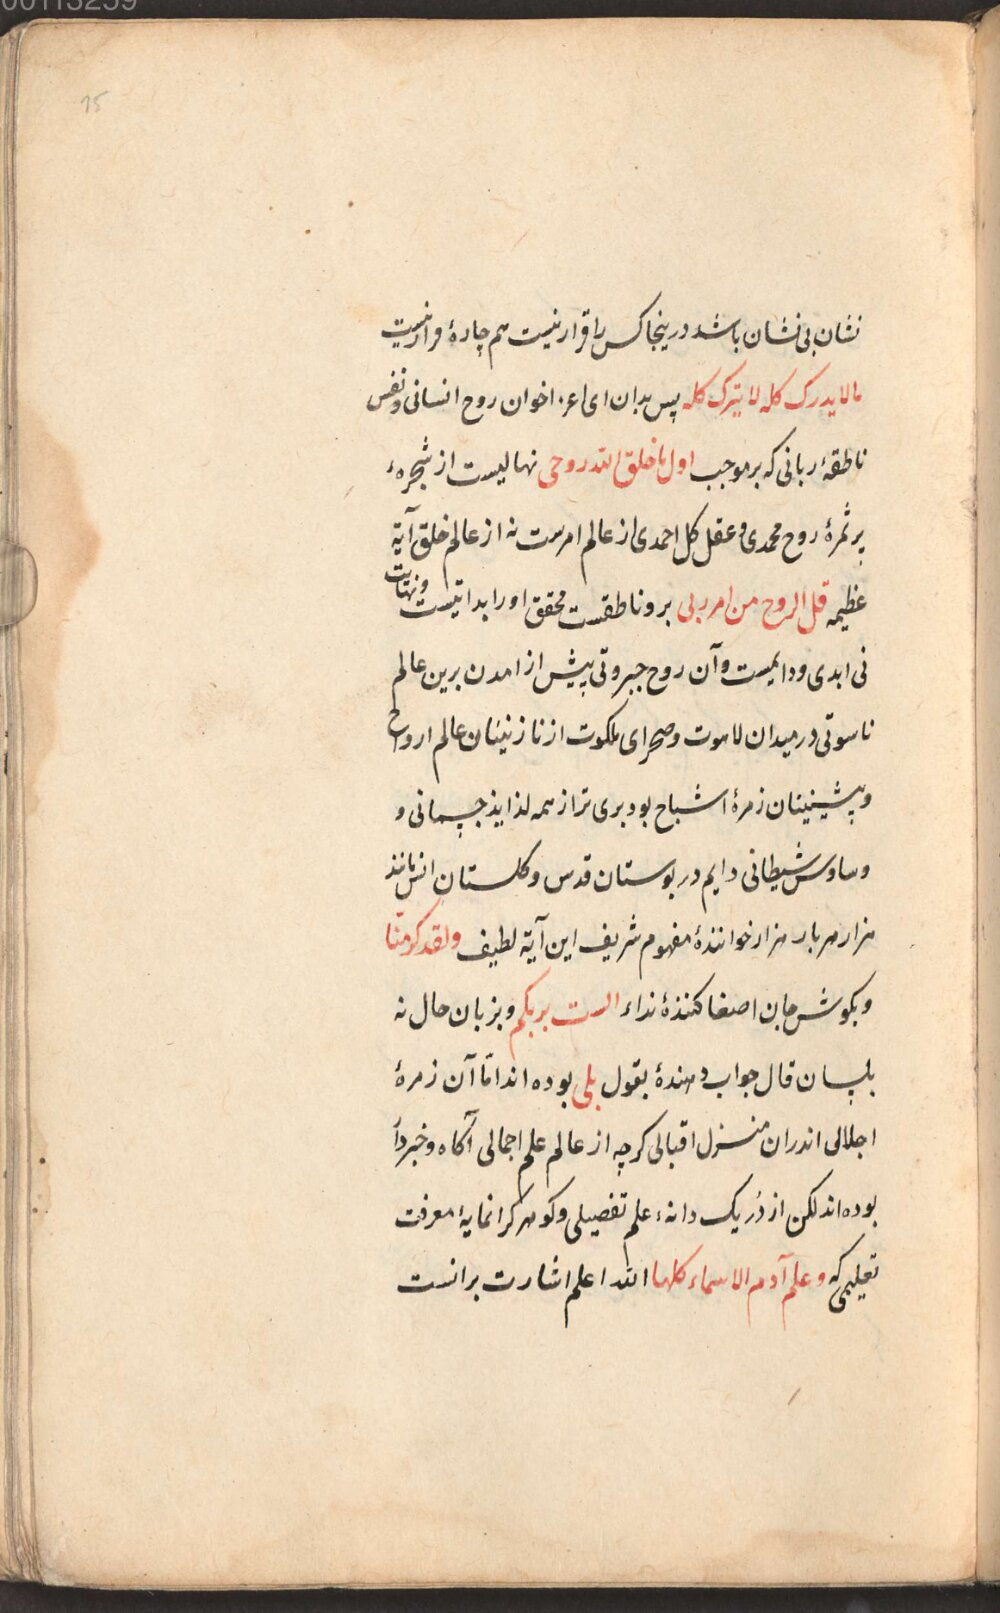 00113259
25
نشان بی نشان باشد درینجا کس را قرار نیست هم چارهٔ فرار نیست
مالا یدرک کله لا یترک کله پس بدان ای اعز اخوان روح انسانی و نفس
ناطقهٔ ربانی که بر موجب اول ما خلق الله روحی نهالیست از شجرهء
پر ثمرهٔ روح محمدی و عقل کل احمدی از عالم امرست نه از عالم خلق آیة
عظیمه قل الروح من امر ربی برو ناطقست محقق اورا بدایتیست و نهایت
نی ابدی و دایمیست و آن روح جبروتی پیش از امدن برین عالم
ناسوتی در میدان لاهوت و صحرای ملکوت از نازنینان عالم ارواح
و پیشینینان زمرهٔ اشباح بود بری تر از همه لذایذ جسمانی و
وساوس شیطانی دایم در بوستان قدس و کلستان انس مانند
هزار هر بار هزار خوانندهٔ مفهوم شریف این آیة لطیف ولقد کرمنا
و بکوش جان اصغا کنندهٔ نداء الست بربکم و بزبان حال نه
بلسان قال جواب دهندهٔ بقول بلی بوده اند امّا آن زمرهٔ
اجلالی اندران منزل اقبالی کرچه از عالم علم اجمالی آکاه و خبردار
بوده اند لکن از دُر یک دانهء علم تفصیلی و کوهر کرانمایهٔ معرفت
تعلیمی که و علم آدم الاسماء کلها الله اعلم اشارت برانست